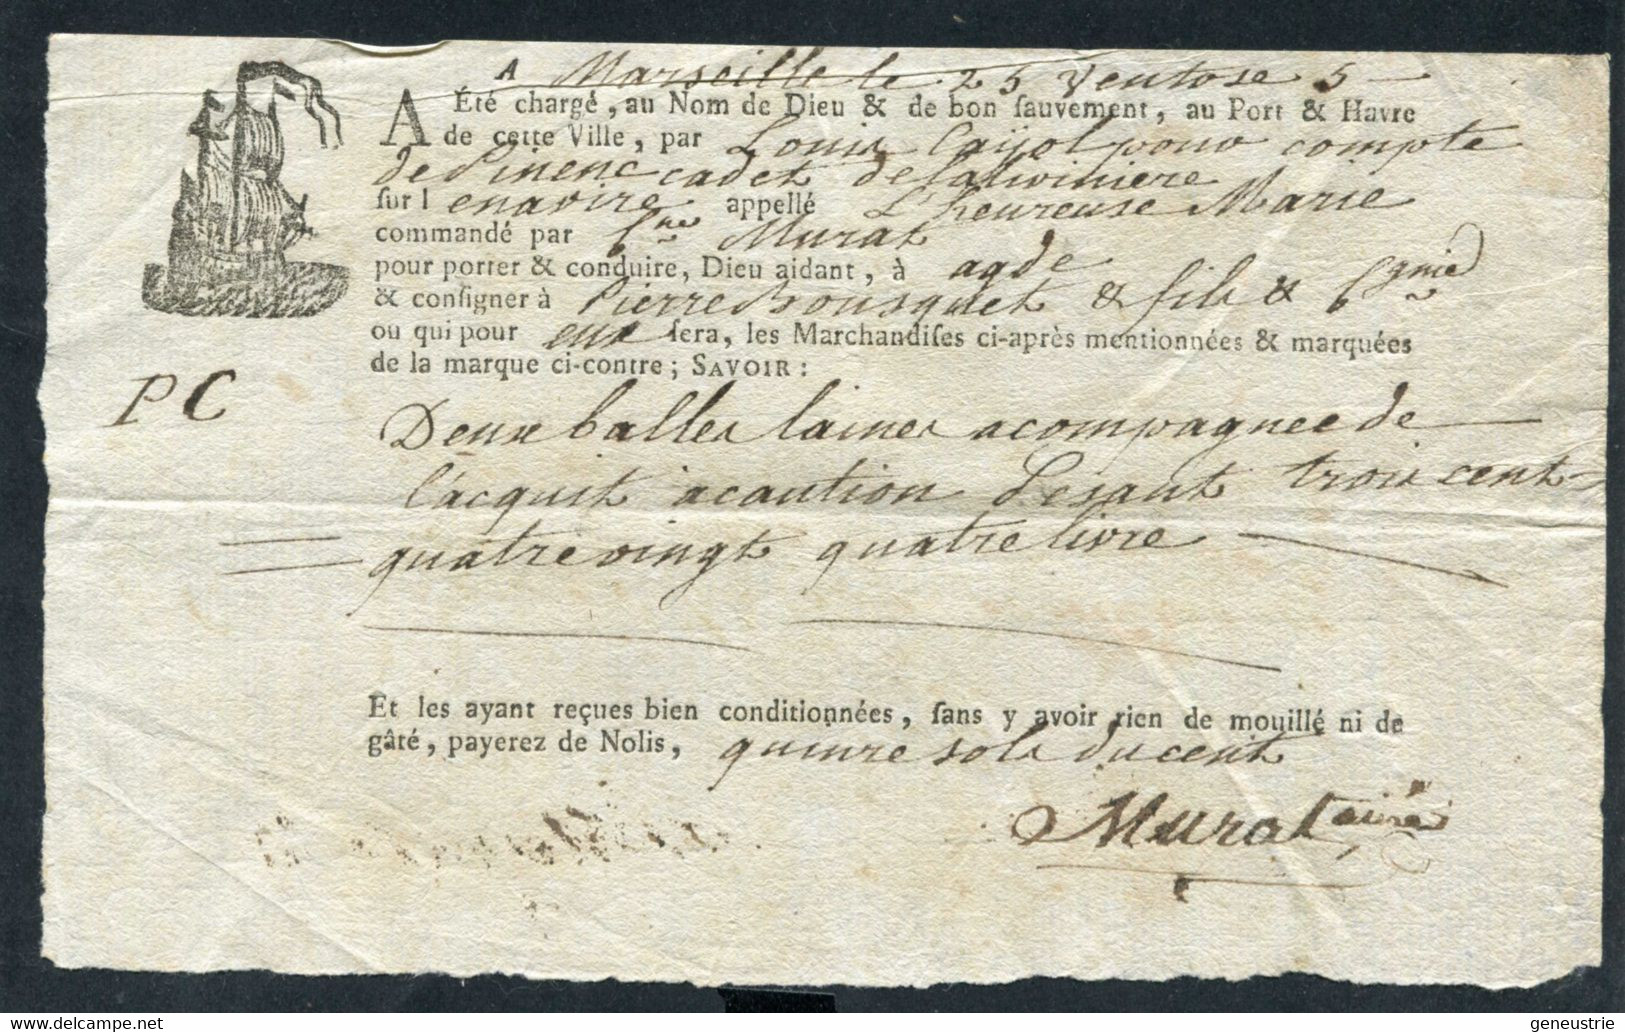 A Marseille le 25 Ventose 5
A Été chargé, au Nom de Dieu & de bon ſauvement, au Port & Havre
de cette Ville, par Louis Caijol pour compte
de Pinenc cadet de
ſur l enavire appellé L'heureuse Marie
commandé par Murat
pour porter & conduire, Dieu aidant, à agde
& conſigner à Pierre Bousquet & fils & Cgnie
ou qui pour eux ſera, les Marchandiſes ci-après mentionnées & marquées
de la marque ci-contre; SAVOIR:
PC
Deux balles laines acompagnee de
l'acquit acaution Pesant trois cent
quatrevingt quatre livre
Et les ayant reçues bien conditionnées, ſans y avoir rien de mouillé ni de
gâté, payerez de Nolis, quinze sols du cent
Murat ainé
geneustrie